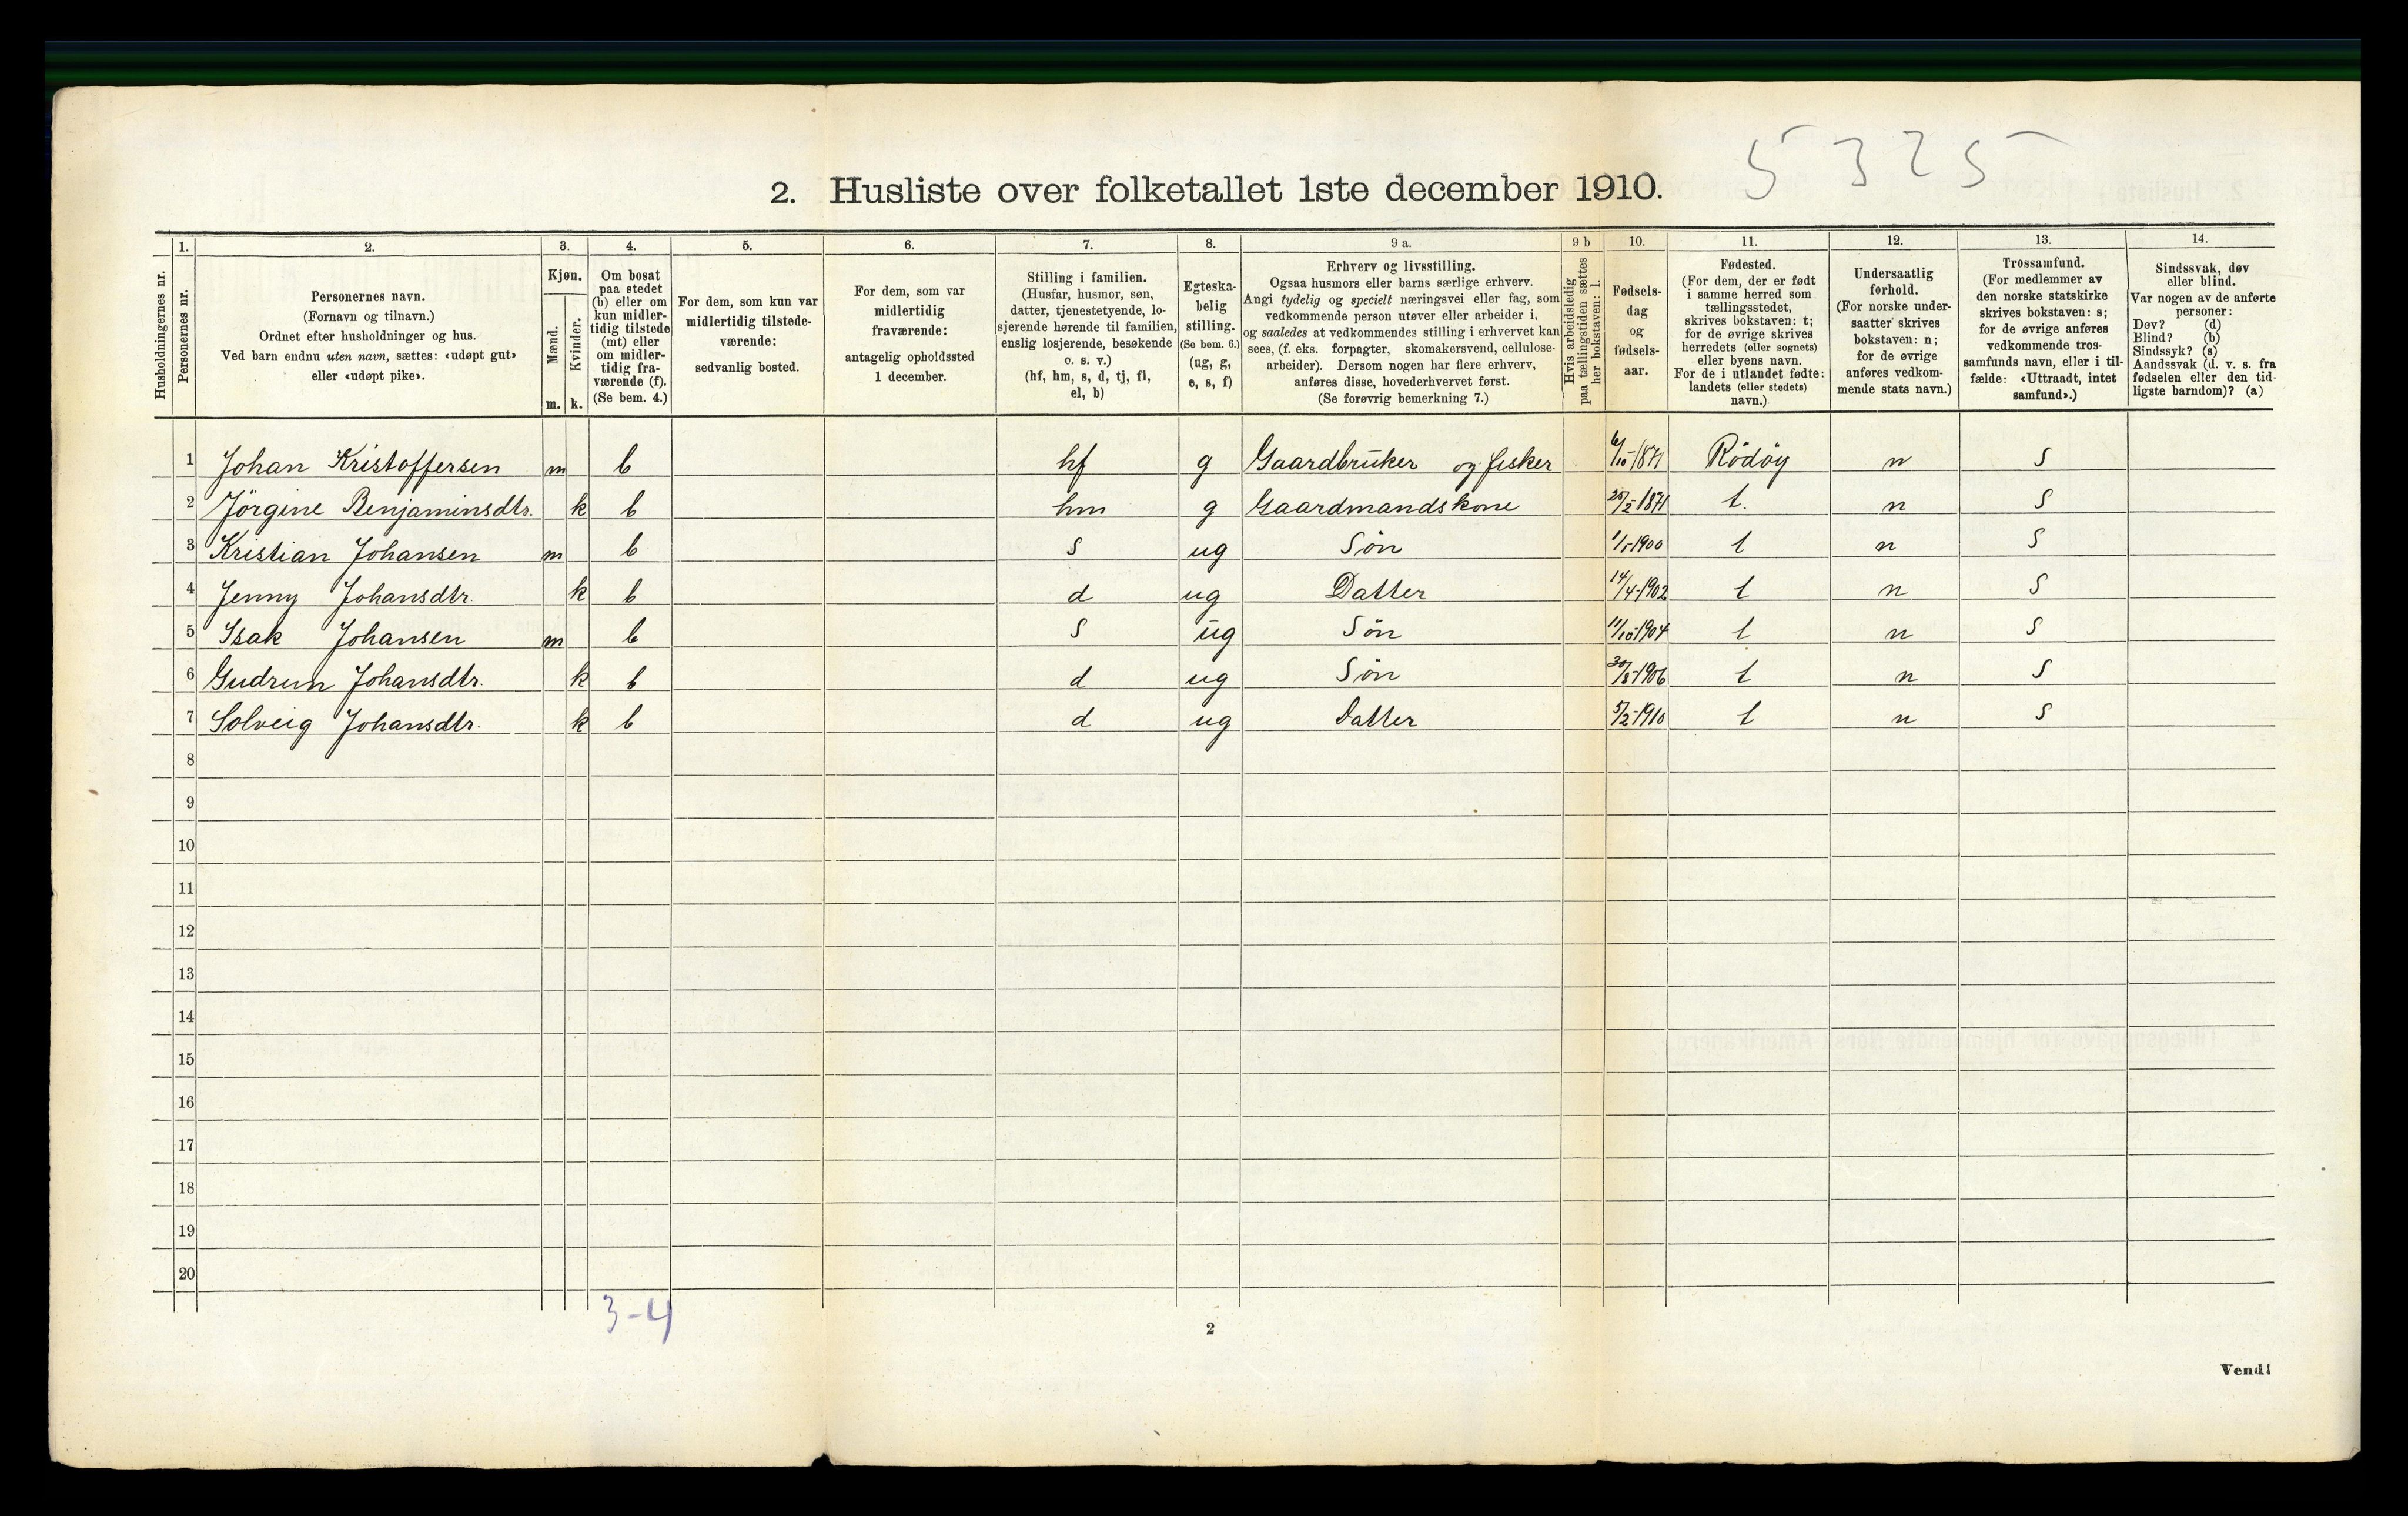 5325
2. Husliste over folketallet 1ste december 1910.
Husholdningernes nr.
1.
Personernes nr.
2.
Personernes navn.
(Fornavn og tilnavn.)
Ordnet efter husholdninger og hus.
Ved barn endnu uten navn, sættes: «udøpt gut»
eller «udøpt pike».
3.
Kjøn.
Mænd.
Kvinder.
m. k.
4.
Om bosat
paa stedet
(b) eller om
kun midler-
tidig tilstede
(mt) eller
om midler-
tidig fra-
værende (f).
(Se bem. 4.)
5.
For dem, som kun var
midlertidig tilstede-
værende:
sedvanlig bosted.
6.
For dem, som var
midlertidig
fraværende:
antagelig opholdssted
1 december.
7.
Stilling i familien.
(Husfar, husmor, søn,
datter, tjenestetyende, lo-
sjerende hørende til familien,
enslig losjerende, besøkende
o. s. v.)
(hf, hm, s, d, tj, fl,
el, b)
8.
Egteska-
belig
stilling.
(Se bem. 6.)
(ug, g,
e, s, f)
9 a.
Erhverv og livsstilling.
Ogsaa husmors eller barns særlige erhverv.
Angi tydelig og specielt næringsvei eller fag, som
vedkommende person utøver eller arbeider i,
og saaledes at vedkommendes stilling i erhvervet kan
sees, (f. eks. forpagter, skomakersvend, cellulose-
arbeider). Dersom nogen har flere erhverv,
anføres disse, hovederhvervet først.
(Se forøvrig bemerkning 7.)
9 b
Hvis arbeidsledig
paa tællingstiden sættes
her bokstaven: l.
10.
Fødsels-
dag
og
fødsels-
aar.
11.
Fødested.
(For dem, der er født
i samme herred som
tællingsstedet,
skrives bokstaven: t;
for de øvrige skrives
herredets (eller sognets)
eller byens navn.
For de i utlandet fødte:
landets (eller stedets)
navn.)
12.
Undersaatlig
forhold.
(For norske under-
saatter skrives
bokstaven: n;
for de øvrige
anføres vedkom-
mende stats navn.)
13.
Trossamfund.
(For medlemmer av
den norske statskirke
skrives bokstaven: s;
for de øvrige anføres
vedkommende tros-
samfunds navn, eller i til-
fælde: «Uttraadt, intet
samfund».)
14.
Sindssvak, døv
eller blind.
Var nogen av de anførte
personer:
Døv? (d)
Blind? (b)
Sindssyk? (s)
Aandssvak (d. v. s. fra
fødselen eller den tid-
ligste barndom)? (a)
1 Johan Kristoffersen m b hf g Gaardbruker og fisker 6/10-1871 Rödöy n S
2 Jörgine Benjaminsdtr. k b hm g Gaardmandskone 1871 t. n S
3 Kristian Johansen m b S ug Sön 1900 t n S
4 Jenny Johansdtr. k b d ug Datter 14/4-1902 t n S
5 Isak Johansen m b S ug Sön 11/10-1904 t n S
6 Gudrun Johansdtr. k b d ug Sön 30/8-1906 t n S
7 Solveig Johansdtr. k b d ug Datter 5/2-1910 t n S
8
9
10
11
12
13
14
15
16
17
18
19
20
3-4
2
Vend!